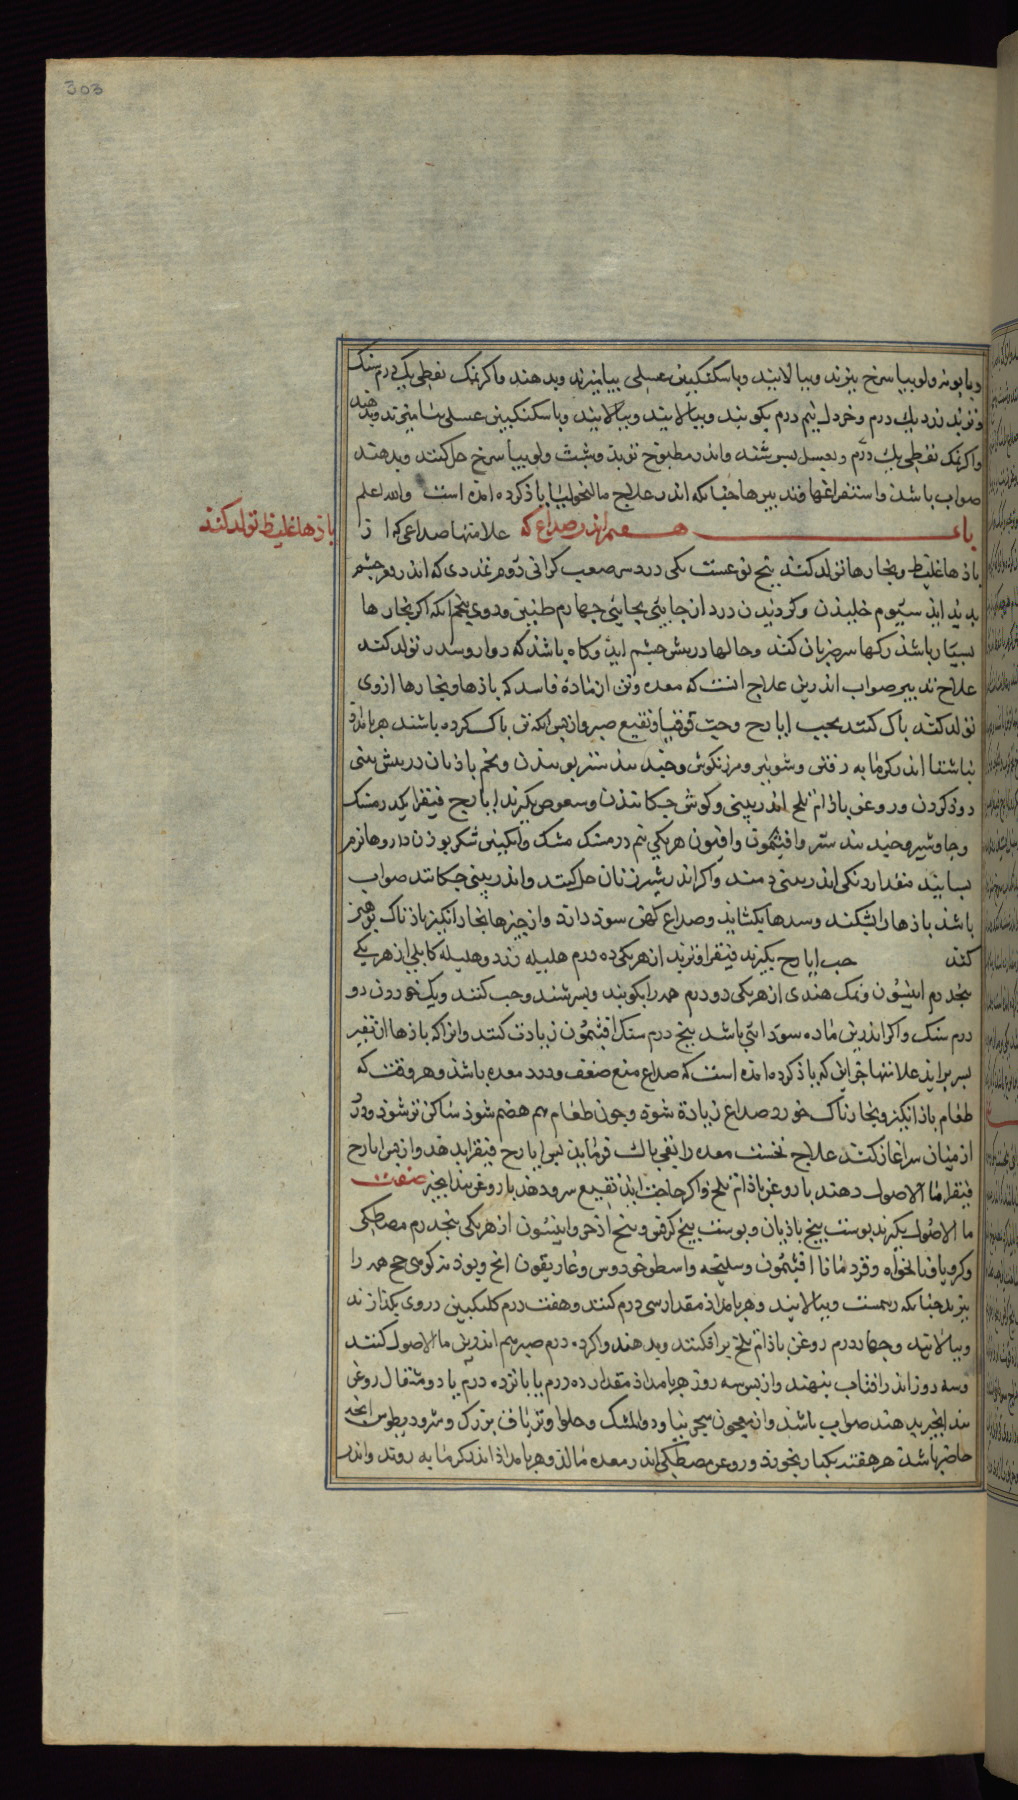 303
وبابونه ولوبیا سرخ بپزند وبپالایند وباسکنکبین عسلی بیامیزند وبدهند واکر نمک نفطی یک درم سنک
وتربد زرد یک درم وخردل نیم درم بکوبند وبپالایند وبپالایند وباسکنکبین عسلی بیامیزند وبدهند
واکر نمک نفطی یک درم وبعسل بسرشند واندر مطبوخ تربد وشبث ولوبیا سرخ حل کنند وبدهند
صواب باشذ واستفراغها وتدبیرها چنانکه اندر علاج مالنخولیا یاذ کرده امذه است والله اعلم
باب هفتم اندر صداع که علامتها صداعی که از
باذها غلیظ تولد کند
باذها غلیظ وبخارها تولد کند پنج نوعست یکی درد سر صعب کرانی دوم تمددی که اندر دو چشم
بدید اید سیوم خلیذن وکردیدن درد از جایی بجایی چهارم طنین ودوی پنجم انکه اکر بخارها
بسیار باشذ رکها سر ضربان کند وخالها در پیش چشم ایذ وکاه باشذ که دوار وسدر تولد کند
علاج تدبیر صواب اندرین علاج انست که معده وتن از مادهٔ فاسد که باذها وبخارها ازوی
تولد کند پاک کنند بحب ایارج وحب قوقیا ونقیع صبر واز پس انکه تن پاک کرده باشند هر بامداد
ناشتا اندر کرمابه رفتن وشونیز ومرزنکوش وجند بیدستر بوییذن وتخم باذیان در پیش بینی
دوذ کردن وروغن باذام تلخ اندر بینی وکوش چکانیذن وسعوط بکیرند ایارج فیقرا یکدرمسنک
وجاوشیر وجند بیدستر وافیثمون وافیون هر یکی نیم درمسنک مشک وانکبین شکر بوزن داروها نرم
بسایند مقدار دنکی اندر بینی دمند واکر اندر شیر زنان حل کنند واندر بینی چکانند صواب
باشذ باذها را بشکند وسدها بکشاید وصداع کهن سوذ دارد واز چیزها بخار انکیز باذناک پرهیز
کنند حب ایارج بکیرند فیقرا وتربد از هر یکی ده درم هلیله زرد وهلیله کابلی از هر یکی
پنجدرم انیسون ونمک هندی از هر یکی دو درم همه را بکوبند وبسرشند وحب کنند ویک خوردن دو
درم سنک واکر اندرین ماده سودائی باشد پنج درم سنک افیثمون زیادت کنند وانرا که باذها از
بسر براید علامتها جز این که یاذ کرده امذه است که صداع منع ضعف ودرد معده باشذ وهر وقت که
طعام باذ انکیز وبخارناک خورد صداع زیادة شوذ وچون طعام هم هضم شوذ ساکن تر شوذ ودرد
از میان سر اغاز کند علاج نخست معده را بقی پاک فرمایذ پس ایارج فیقرا بدهند واز پس ایارج
فیقرا ما الاصول دهند با روغن باذام تلخ واکر حاجت ایذ نقیع سرو دهند با روغن بیدانجیر صفت
ما الاصول بکیرند پوست بیخ باذیان وپوست بیخ کرفس وبیخ اذخر وانیسون از هر یکی پنجدرم مصطکی
وکرویا ونانخواه وقردمانا افیثمون وسلیخه واسطوخودوس وغاریقون همه را
بپزند چنانکه رسمست وبپالایند وهر بامداذ مقدار سی درم کنند وهفت درم کلنکبین دروی بکذارند
وبپالایند وچهاردرم روغن باذام تلخ برافکنند وبدهند واکر ده درم صبر هم اندرین ما الاصول کنند
وسه روز اندر افتاب بنهند واز پس سه روز هر بامداذ مقدار ده درم یا پانزده درم با دو مثقال روغن
بیدانجیر بدهند صواب باشذ وان معجون سجزنیا ودوالمشک وحلوا وتریاق بزرک ومثرودیطوس انچه
حاضر باشذ هر هفته یکبار بخورذ وروغن مصطکی اندر معده مالذ وهر بامداذ اندر کرمابه روند واندر